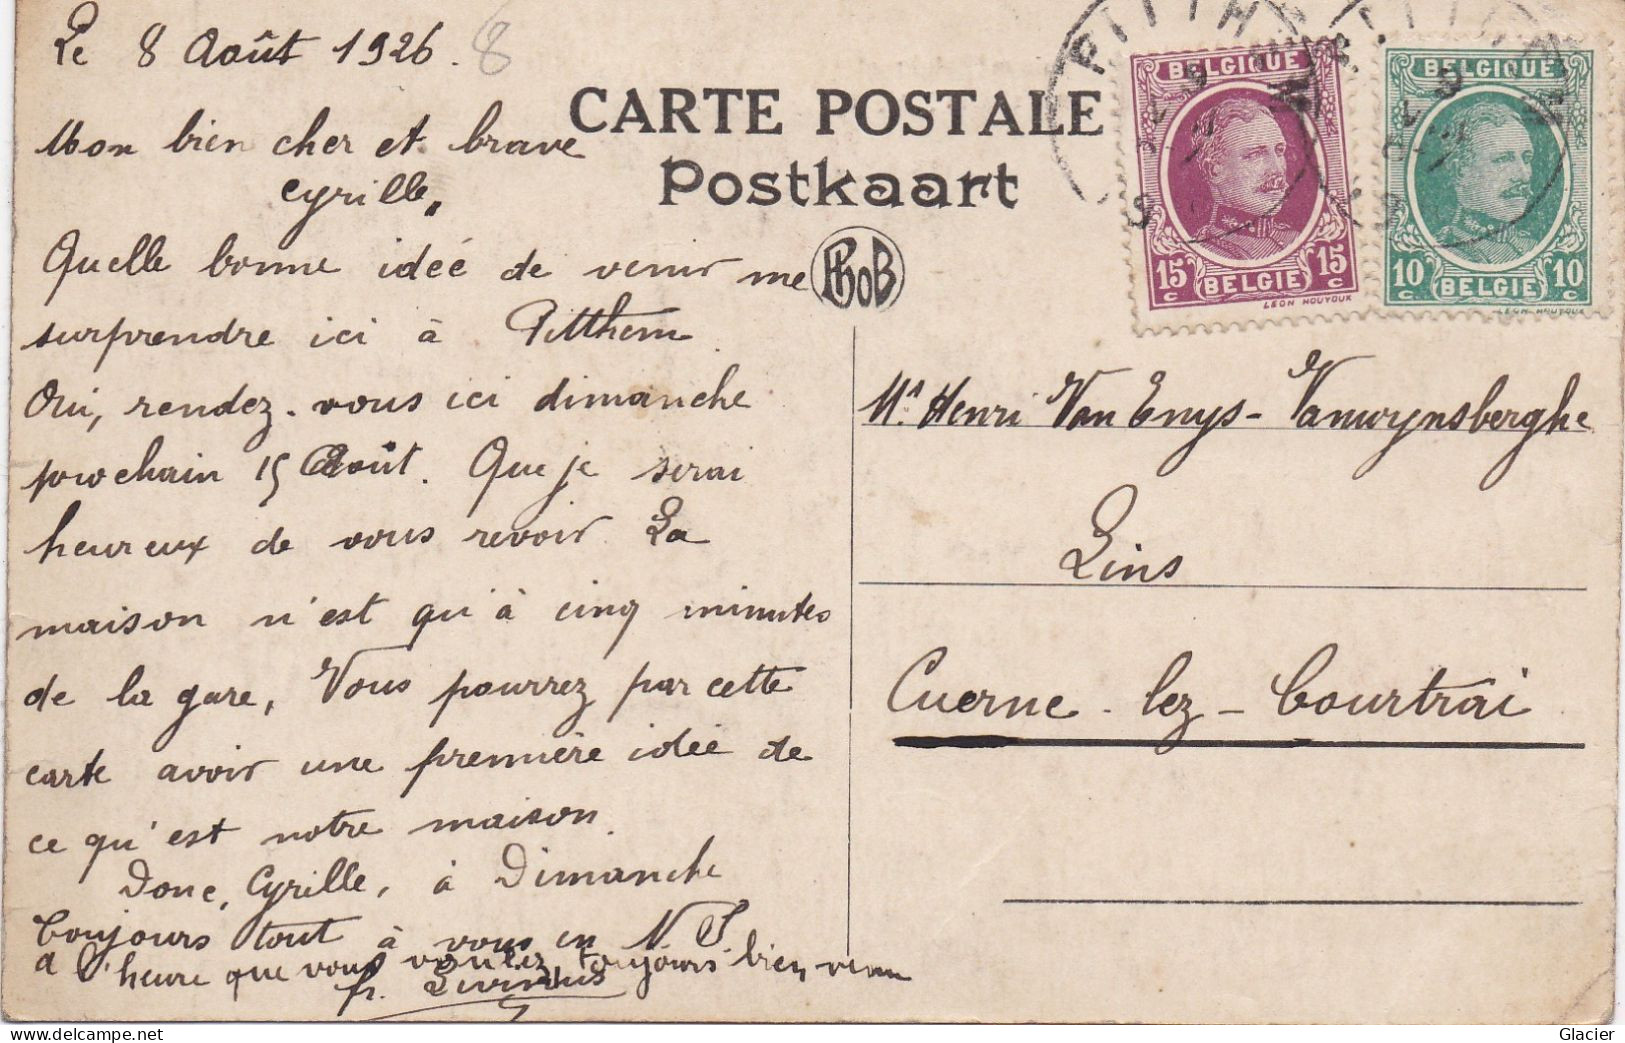 Le 8 Août 1926. 8
CARTE POSTALE
Postkaart
Mon bien cher et brave
Cyrille,
Quelle bonne idée de venir me
surprendre ici à Pitthem
Oui, rendez-vous ici dimanche
prochain 15 Août. Que je serai
heureux de vous revoir. La
maison n'est qu'à cinq minutes
de la gare, Vous pourrez par cette
carte avoir une première idée de
ce qu'est notre maison.
Donc, Cyrille, à Dimanche
Toujours tout à vous en N. S.
à l'heure que vous voulez, toujours bien venu
fr.
PhoB
BELGIQUE
15 C BELGIE 15 C
LEON HOUYOUX
BELGIQUE
10 C BELGIE 10 C
LEON HOUYOUX
PITTHEM
Mr. Henri Van Enys-Vanwynsberghe
Lins
Cuerne-lez-Courtrai
Glacier